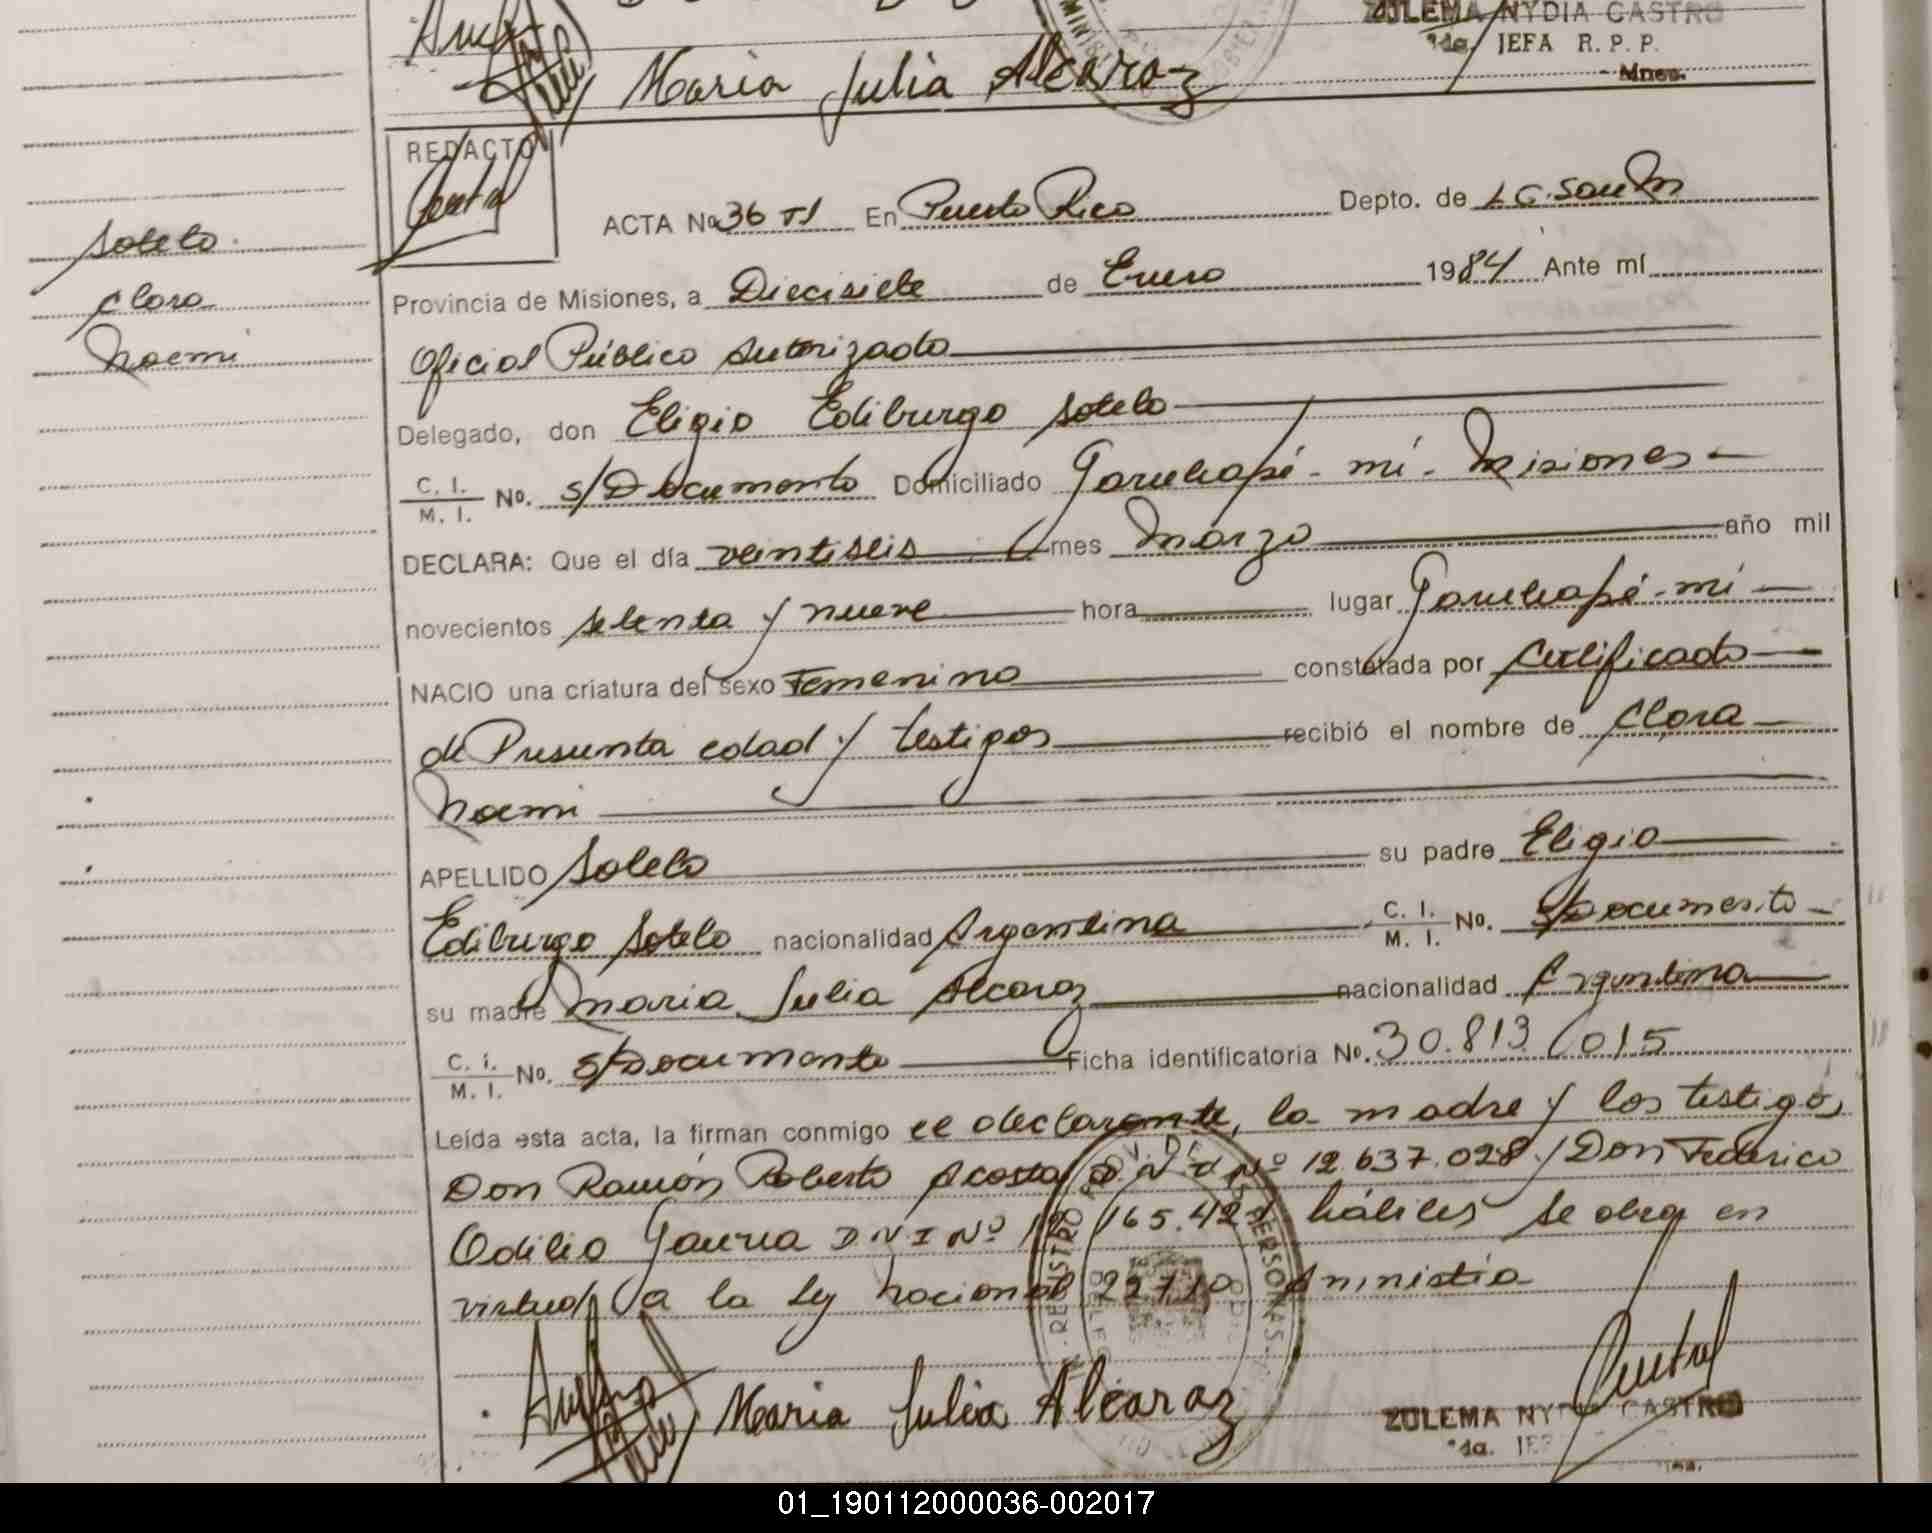 ZULEMA NYDIA CASTRO
JEFA R. P. P.
Mnes.
Maria Julia Alcaraz
REDACTO
ACTA No 36 TI En Puerto Rico Depto. de L.G. San M
Sotelo
Clara
Noemi
Provincia de Misiones, a Diecisiete de Enero 1984 Ante mí
Oficial Público Autorizado
Delegado, don Eligio Ediburgo Sotelo
C. I. / M. I. No. s/Documento Domiciliado Garuhapé-mí-Misiones-
DECLARA: Que el día veintiseis mes Marzo año mil
novecientos setenta y nueve hora lugar Garuhapé-mí
NACIO una criatura del sexo Femenino constatada por Certificado
de Presunta edad y testigos recibió el nombre de Clara
Noemi
APELLIDO Sotelo su padre Eligio
Ediburgo Sotelo nacionalidad Argentina C. I. / M. I. No. s/Documento
su madre Maria Julia Alcaraz nacionalidad Argentina
C. I. / M. I. No. s/Documento Ficha identificatoria No. 30.813.015
Leída esta acta, la firman conmigo el declarante, la madre y los testigos
Don Ramón Roberto Acosta D N I Nº 12.637.028 y Don Federico
Odilio D N I Nº 165.421 hábiles se obra en
virtud a la Ley Nacional 22710 Amnistía
Maria Julia Alcaraz
ZULEMA NYDIA CASTRO
01_190112000036-002017